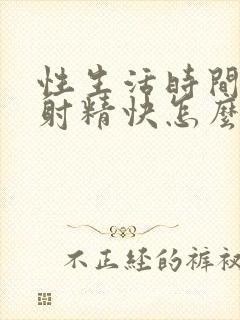 性生活時間
射精快怎麼
不正経的褲衩